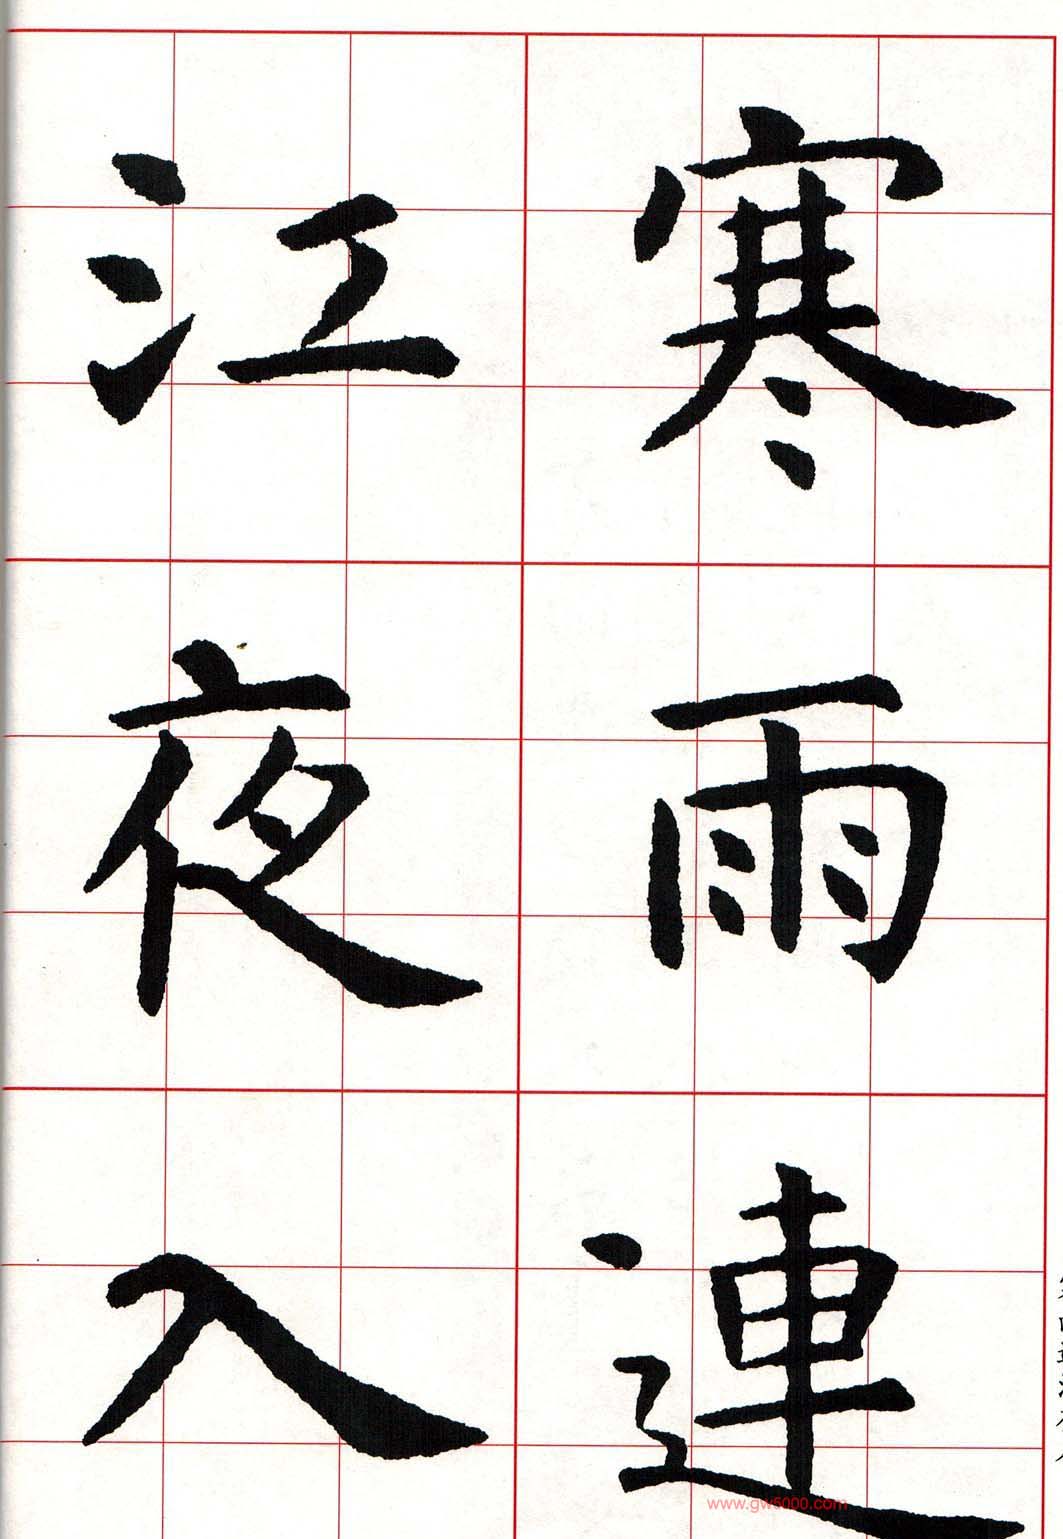 寒雨連
江夜入
www.gw5000.com